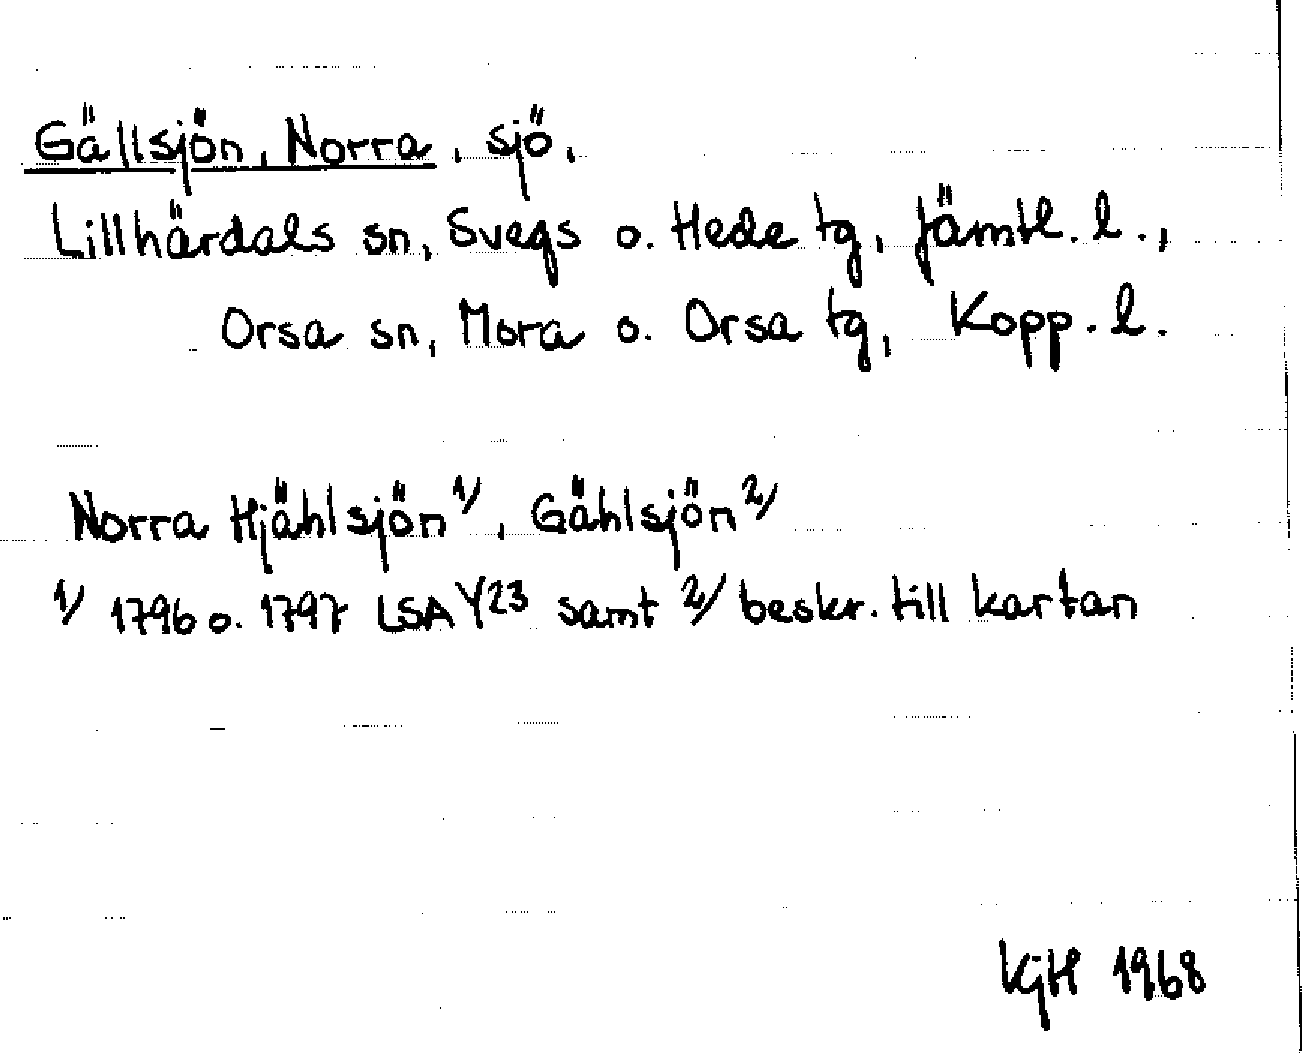 Gällsjön, Norra, sjö,
Lillhärdals sn, Svegs o. Hede tg, Jämtl. l.,
Orsa sn, Mora o. Orsa tg, Kopp. l.
Norra Hjählsjön 1/, Gählsjön 2/
1/ 1796 o. 1797 LSA Y23 samt 2/ beskr. till kartan
KGH 1968